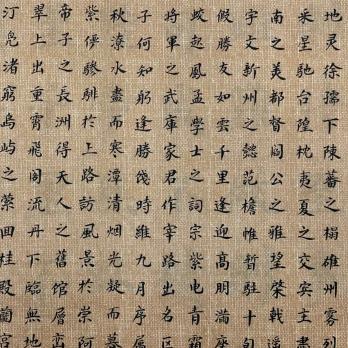 地灵徐孺下陳蕃之榻雄州雾列
采星馳台隍枕夷夏之交宾主盡
南之美都督閻公之雅望棨戟遙
宇文新州之懿范襜帷暫駐十旬
假勝友如雲千里逢迎高明滿座
蛟起鳳孟學士之詞宗紫電青霜
將軍之武庫家君作宰路出名區
子何知躬逢勝餞時維九月序屬
秋潦水盡而寒潭清烟光凝而暮
紫儼驂騑於上路訪風景於崇阿
帝子之長洲得天人之舊館層巒
翠上出重霄飛閣流丹下臨無地
汀凫渚窮島屿之萦回桂殿蘭宮